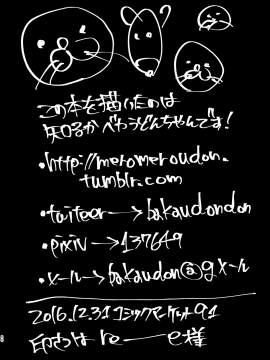 この本を描いたのは
知名かべやうどんちゃんです!
・http://meromeroudon.
tumblr.com
・twitter→bakaudondon
・pixiv→137649
・メール→bakaudon@gメール
2016.12.31 コミックマーケット91
印刷は re--e様
8